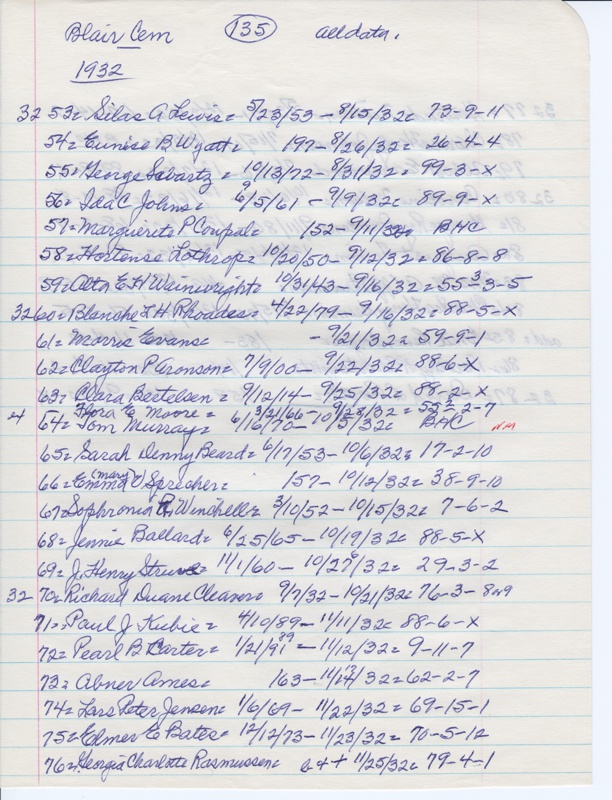 Blair Cem 135 all data.
1932
32 53= Silas A Lewis= 5/23/53 - 8/15/32= 73-9-11
54= Eunice B Wyatt= 197- 8/26/32= 26-4-4
55= George Swartz = 10/13/72 - 8/31/32= 99-3-X
56= Ida C Johns= 9/5/61 - 9/9/32= 89-9-X
57= Marguerite P Coupal= 152- 9/11/32= BHC
58= Hortense Lothrop= 10/20/50 - 9/12/32= 86-8-8
59= Alta E H Wainwright= 10/31/43 - 9/16/32= 55-3-5
32 60= Blanche L H Rhoades= 4/22/79 - 9/16/32= 88-5-X
61= Morris Evans= - 9/21/32= 59-9-1
62= Clayton P Aronson= 7/9/00 - 9/22/32= 88-6-X
63= Clara Bertelsen = 9/12/14 - 9/25/32= 88-2-X
ex Flora E Moore = 3/21/66 - 9/28/32= 52-2-7
64= Tom Murray= 6/16/70 - 10/5/32= BHC NM
65= Sarah Denny Beard= 6/17/53 - 10/6/32= 17-2-10
66= Emma (Mary) C Sprecher= 157- 10/12/32= 38-9-10
67= Sophronia R Winchell= 3/10/52 - 10/15/32= 7-6-2
68= Jennie Ballard= 6/25/65 - 10/19/32= 88-5-X
69= J. Henry Struve= 11/1/60 - 10/27/32= 29-3-2
32 70= Richard Duane Cleaver= 9/7/32 - 10/21/32= 76-3-8or9
71= Paul J Kubie = 4/10/89 - 11/11/32= 88-6-X
72= Pearl B Carter= 1/21/91 89 - 11/12/32= 9-11-7
73= Abner Ames= 163- 11/14/32= 62-2-7
74= Lars Peter Jensen= 1/6/69 - 11/22/32= 69-15-1
75= Elmer E Bates= 12/12/73 - 11/23/32= 70-5-12
76= Georgia Charlotte Rasmussen= b + + 11/25/32= 79-4-1